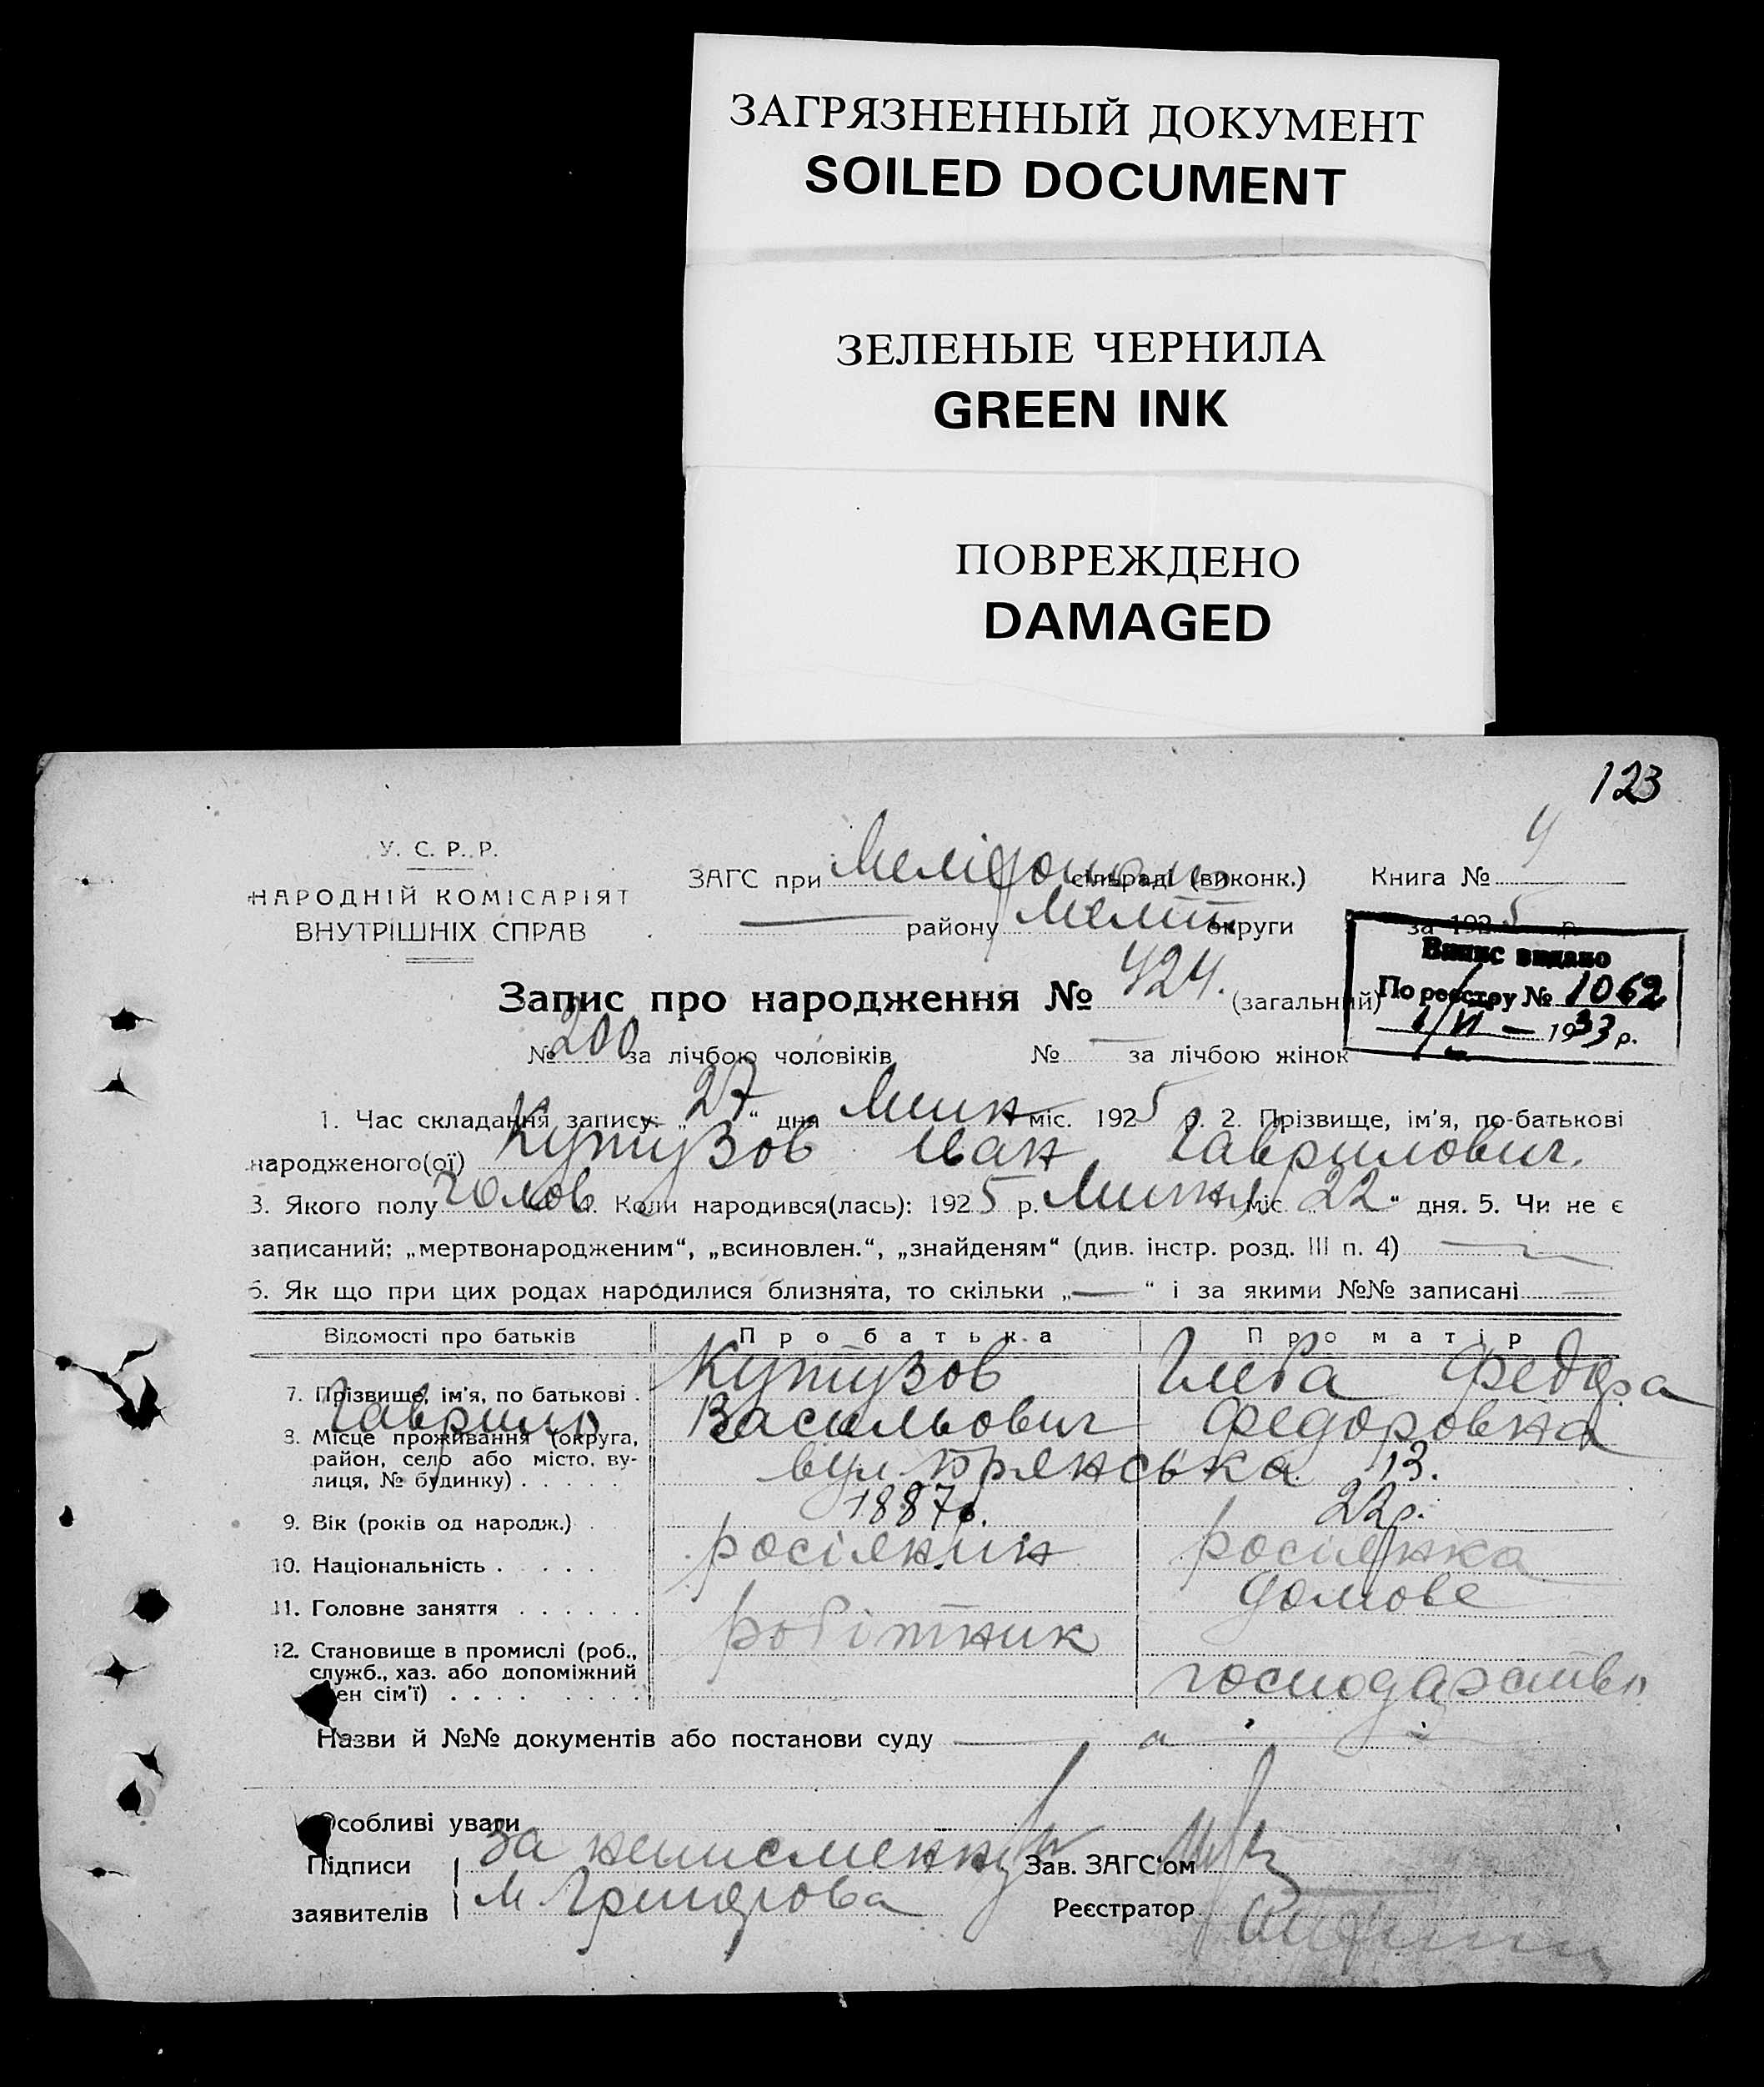 ЗАГРЯЗНЕННЫЙ ДОКУМЕНТ
SOILED DOCUMENT
ЗЕЛЕНЫЕ ЧЕРНИЛА
GREEN INK
ПОВРЕЖДЕНО
DAMAGED
123
У. С. Р. Р.
НАРОДНІЙ КОМІСАРІЯТ
ВНУТРІШНІХ СПРАВ
ЗАГС при сільраді (виконк.) Книга № 4
— району Меліт округи за 1925 р.
Випис видано
По реєстру № 1062
1/VI — 1933 р.
Запис про народження № 424. (загальний)
№ 200 за лічбою чоловіків № — за лічбою жінок
1. Час складання запису: „27“ дня міс. 1925 р. 2. Прізвище, ім'я, по-батькові
народженого(ої) Кутузов Іван Гаврилович.
3. Якого полу Чолов. Коли народився(лась): 1925 р. міс. „22“ дня. 5. Чи не є
записаний: „мертвонародженим“, „всиновлен.“, „знайденям“ (див. інстр. розд. III п. 4) —
6. Як що при цих родах народилися близнята, то скільки „—“ і за якими №№ записані —
Відомості про батьків Про батька Про матір
7. Прізвище, ім'я, по батькові . Кутузов Федора
Гаврило Васильович Федоровна
8. Місце проживання (округа,
район, село або місто, ву-
лиця, № будинку) . . . . . вул. Брянська 13.
9. Вік (років од народж.) . 1887р. 22р.
10. Національність . . . . . росіянин росіянка
11. Головне заняття . . . . . . робітник домове
12. Становище в промислі (роб.,
служб., хаз. або допоміжний
ен сім'ї) . . . . господарство
Назви й №№ документів або постанови суду —
Особливі уваги
Підписи За неписменну Зав. ЗАГС'ом
заявителів М. Григорова Реєстратор